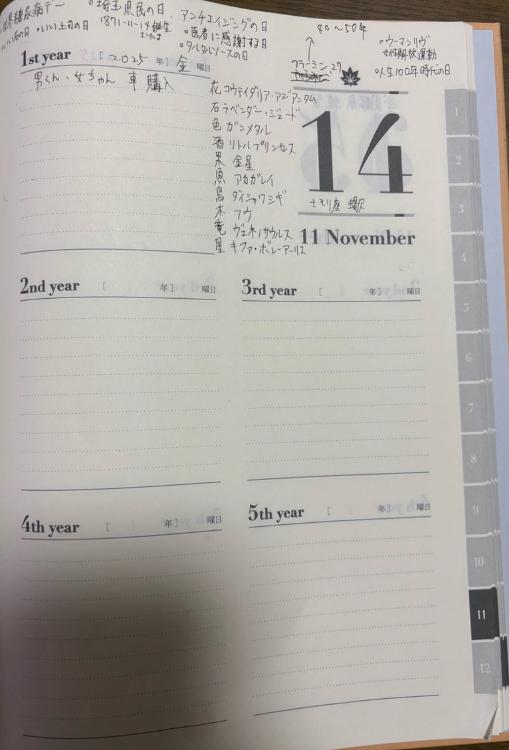 世界糖尿病デー
・埼玉県民の日
1871-11-14 誕生
さいたま
・いい石の日 ・いい土の日
アンチエイジングの日
・医者に感謝する日
・タルタルソースの日
40〜50年
・ウーマンリヴ
女性解放運動
・人生100年時代の日
1st year [2025 年] 金 曜日
男くん・女ちゃん 車 購入
花 コウテイダリア・アジアンタム
石 ラベンダー・ジェード
色 ガンメタル
酒 リトルプリンセス
果 金星
魚 アカガレイ
鳥 ダイシャクシギ
木 フウ
竜 ヴェネノサウルス
星 キファ・ボレアーリス
14
11 November
2nd year [ 年] 曜日
3rd year [ 年] 曜日
4th year [ 年] 曜日
5th year [ 年] 曜日
1
2
3
4
5
6
7
8
9
10
11
12